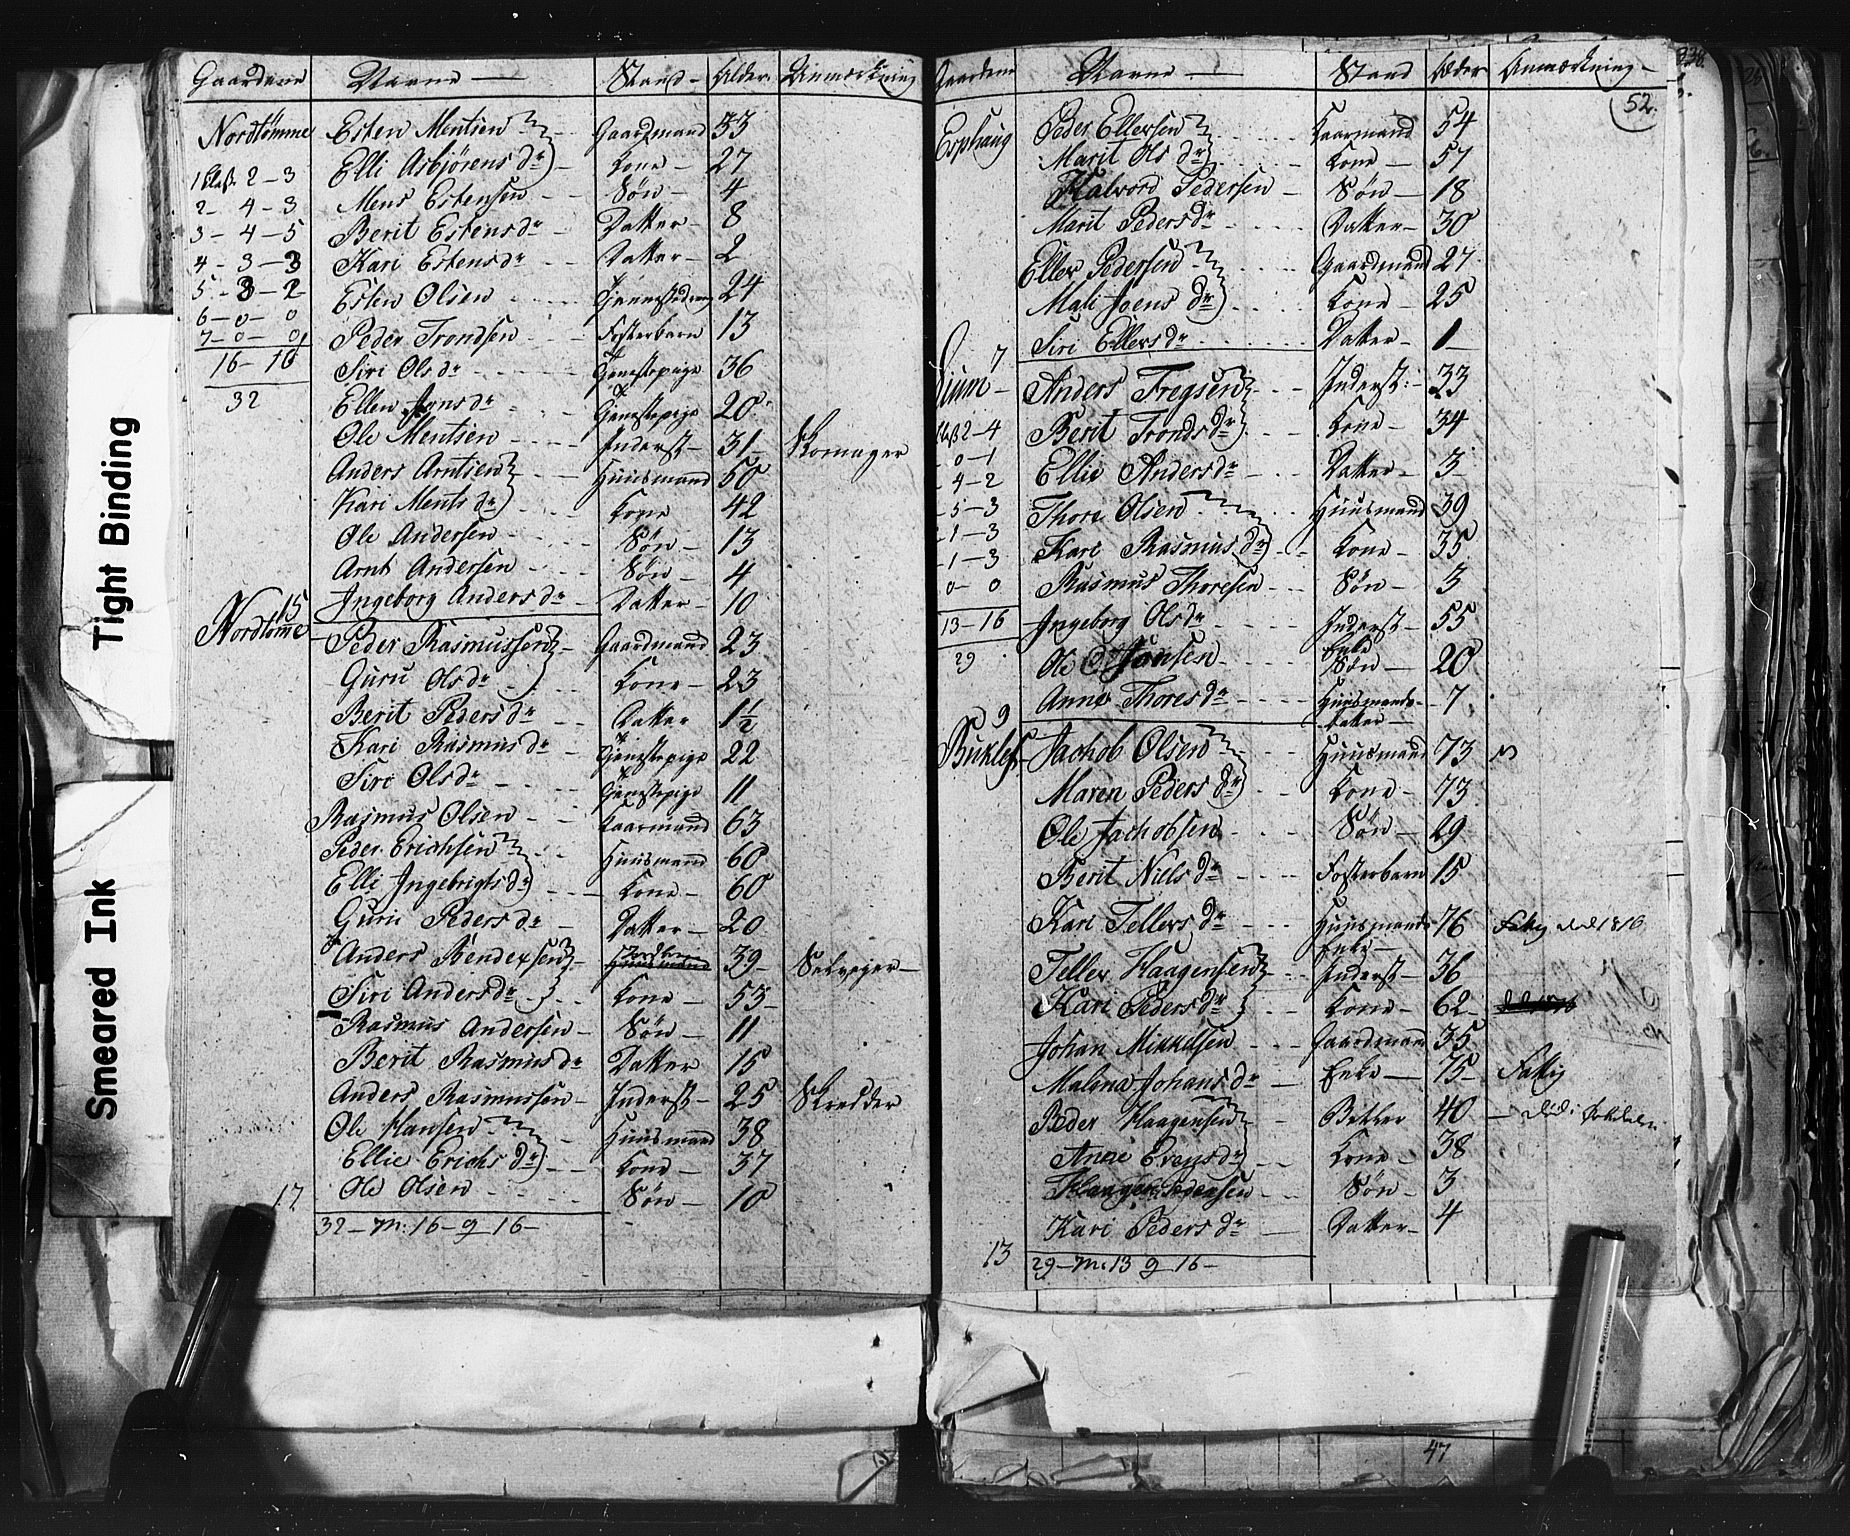 Gaardene Navne Stand Alder Anmærkning
Nordtømme Esten Mentsen Gaardmand 33
Elli Asbjørens dr Kone 27
1 Class 2-3 Mens Estensen Søn 4
2-4-3 Berit Estensdr Datter 8
3-4-5 Kari Estensdr Datter 2
4-3-3 Esten Olsen Tjenestedreng 24
5-3-2 Peder Trondsen Fosterbarn 13
6-0-0 Siri Olsdr Tjenestepige 36
7-0-0
16-16
32 Ellen Jonsdr Tjenestepige 20
Ole Mentsen Inderst 31 Skomager
Anders Arntsen Huusmand 50
Kari Ments dr Kone 42
Ole Andersen Søn 13
Arnt Andersen Søn 4
15 Ingeborg Andersdr Datter 10
Nordtømme Peder Rasmussen Gaardmand 23
Guru Olsdr Kone 23
Berit Pedersdr Datter 1½
Kari Rasmusdr Tjenestepige 22
Siri Olsdr Tjenestepige 11
Rasmus Olsen Kaarmand 63
Peder Erichsen Huusmand 60
Elli Ingebrigtsdr Kone 60
Guru Pedersdr Datter 20
Anders Bendexsen Huusmand 39 Selvejer
Siri Andersdr Kone 53
Rasmus Andersen Søn 11
Berit Rasmusdr Datter 15
Anders Rasmussen Inderst 25 Skredder
Ole Hansen Huusmand 38
Ellie Erichsdr Kone 37
17 Ole Olsen Søn 10
32 - M: 16 - q 16 -
Gaardene Navne Stand Alder Anmærkning
52.
Esphaug Peder Ellersen Kaarmand 54
Marit Ols dr Kone 57
Halvord Pedersen Søn 18
Marit Pedersdr Datter 30
Eller Pedersen Gaardmand 27
Mali Joens dr Kone 25
7 Siri Ellersdr Datter 1
Anders Fregsen Inderst 33
2-4 Berit Trondsdr Kone 34
0-1 Ellie Andersdr Datter 3
4-2
5-3 Thore Olsen Huusmand 39
1-3 Kari Rasmusdr Kone 35
1-3
0-0 Rasmus Thoresen Søn 3
13-16 Ingeborg Olsdr Inderst Enke 55
29 Ole Hansen Søn 20
9 Anne Thoresdr Huusmands datter 7
Buklef Jachob Olsen Huusmand 73
Maren Pedersdr Kone 73
Ole Jachobsen Søn 29
Berit Niels dr Fosterbarn 15
Kari Tellers dr Huusmands Enke 76
Teller Haagensen Inderst 36
Kari Pedersdr Kone 62
Johan Mikkelsen Gaardmand 35
Malena Johansdr Enke 75 Fattig
Peder Haagensen Betler 40
Anne Evensdr Kone 38
Haagen Pedersen Søn 3
Kari Pedersdr Datter 4
13 29 - M: 13 q 16 -
47
Tight Binding
Smeared Ink